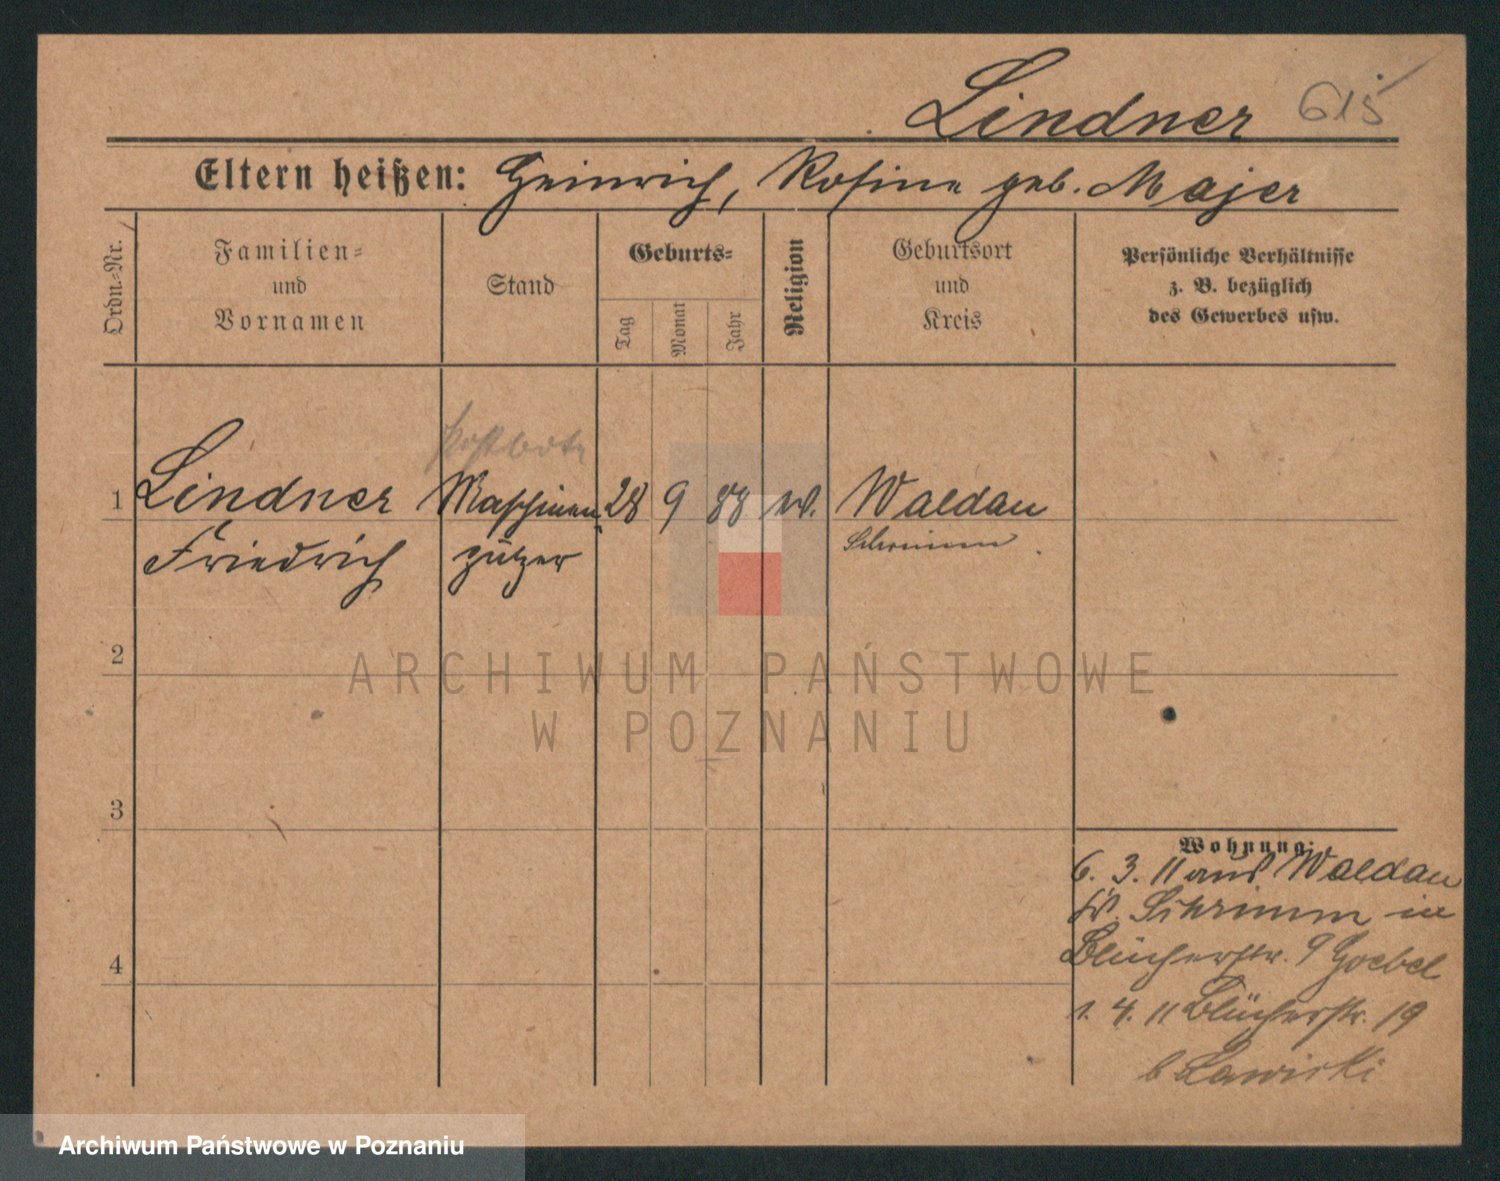 Lindner 615
Eltern heißen: Heinrich, Rosine geb. Majer
Ordn.-Nr.
Familien-
und
Vornamen
Stand
Geburts-
Tag
Monat
Jahr
Religion
Geburtsort
und
Kreis
Persönliche Verhältnisse
z. B. bezüglich
des Gewerbes usw.
Postbote
1 Lindner Maschinen 28 9 88 ev. Waldau
Friedrich putzer Schrimm
2
3
4
Wohnung:
6. 3. 11 aus Waldau
Kr. Schrimm in
Blücherstr. 9 Goebel
1. 4. 11 Blücherstr. 19
b
ARCHIWUM PAŃSTWOWE
W POZNANIU
Archiwum Państwowe w Poznaniu